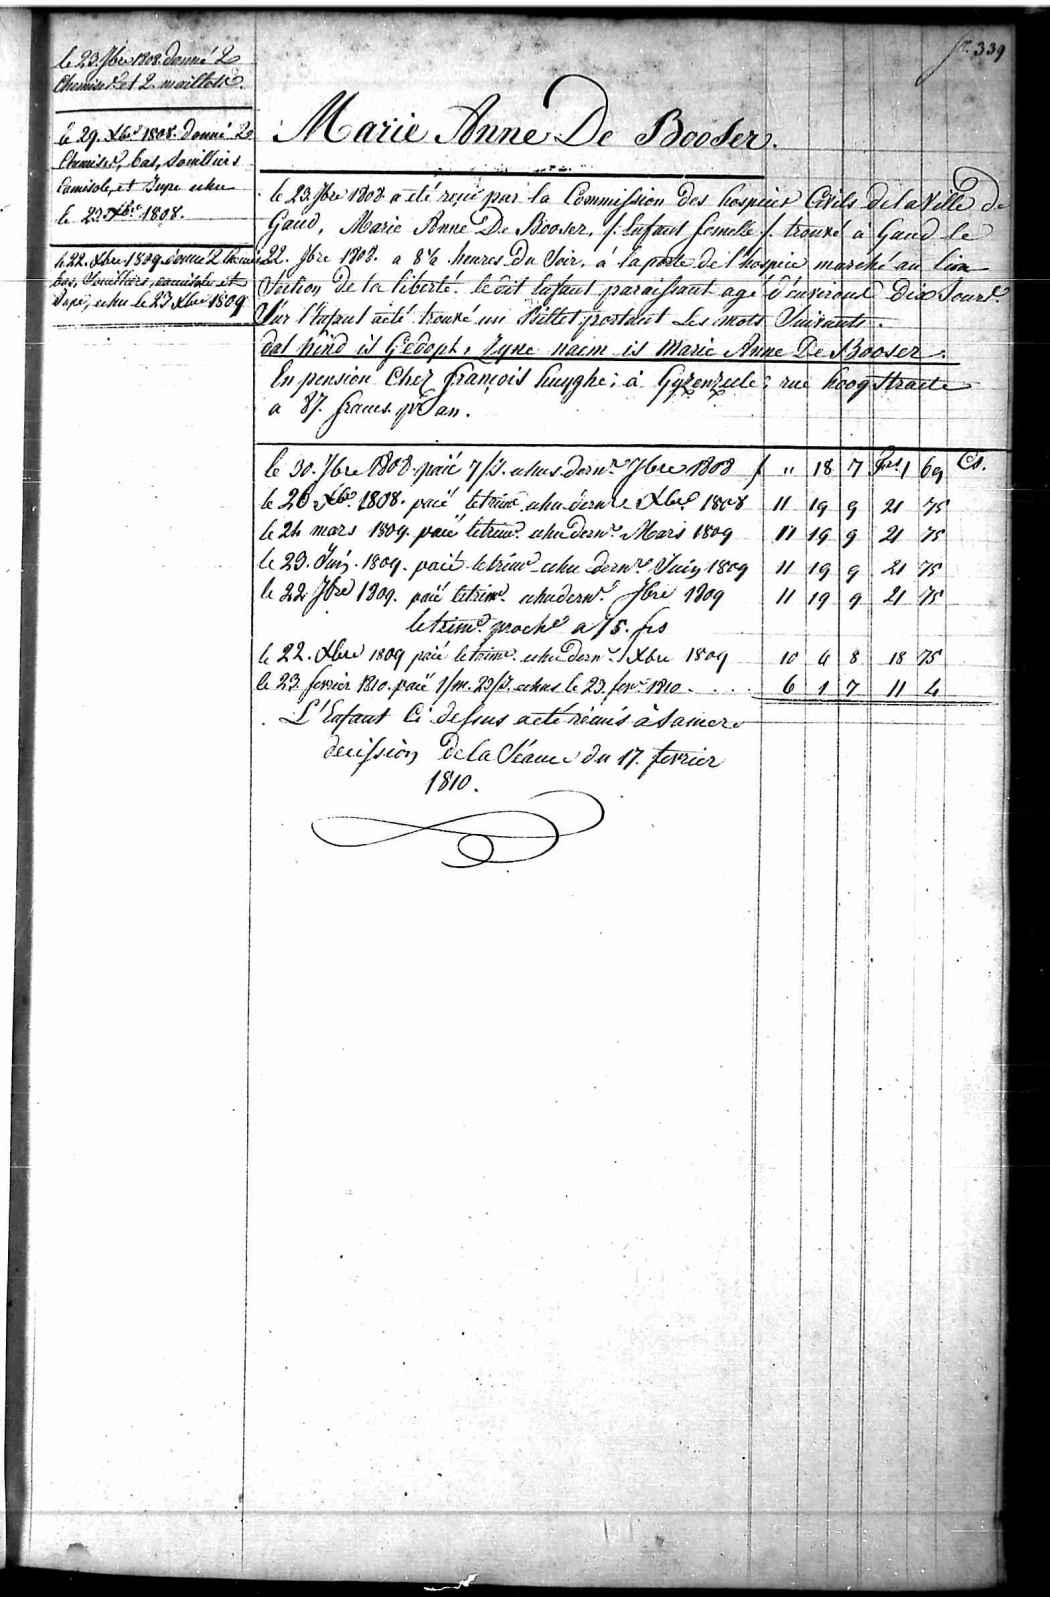 f.° 339
le 23. 7bre 1808. donné 2
Chemises et 2. maillots.
le 29. Xbre 1808. donné 2
Chemises, bas, Souilliers
Camisole, et Jupe echu
le 23. Xbre 1808.
le 22. Xbre 1809 donné 2 Chemis
bas, Souilliers, camisole et
Jupe, echu le 23 Xbre 1809
Marie Anne De Booser.
le 23. 7bre 1808 a été reçu par la Commission des hospices Civils de la Ville de
Gand, Marie Anne De Booser, /. Enfant femelle /. trouvé a Gand le
22. 7bre 1808. a 8½ heures du Soir. á la porte de l'hospice marché au lin
Section de la liberté. le dit Enfant paraissant agé d'environs Dix Jours.
Sur l'Enfant a été trouvé un Billet portant Les mots Suivants.
dat kind is Gedopt, Zyne naem is Marie Anne De Booser.
En pension Chez françois huyghe; à Gyzenzeele; rue hoogstraete
a 87. francs pr. an.
le 30. 7bre 1808. paié 7/J. echus dernr. 7bre 1808 f " 18 7 frs. 1 69 Cs.
le 20 Xbre 1808. paié le trimr. echu dernr. Xbre 1808 11 19 9 21 75
le 24 mars 1809. paié le trimr. echu dernr. Mars 1809 11 19 9 21 75
le 23. Juin. 1809. paié le trimr. echu dernr. Juin 1809 11 19 9 21 75
le 22 7bre 1809. paié le trimr. echu dernr. 7bre 1809 11 19 9 21 75
le trimr. proche a 75. frs
le 22. Xbre 1809 paié le trimr. echu dernr. Xbre 1809 10 6 8 18 75
le 23 fevrier 1810. paié 1/m. 23/J. echus le 23. fevr. 1810 . . . . 6 1 7 11 4
L'Enfant Ci dessus a été remis à sa mere
decission de la Séance du 17. fevrier
1810.